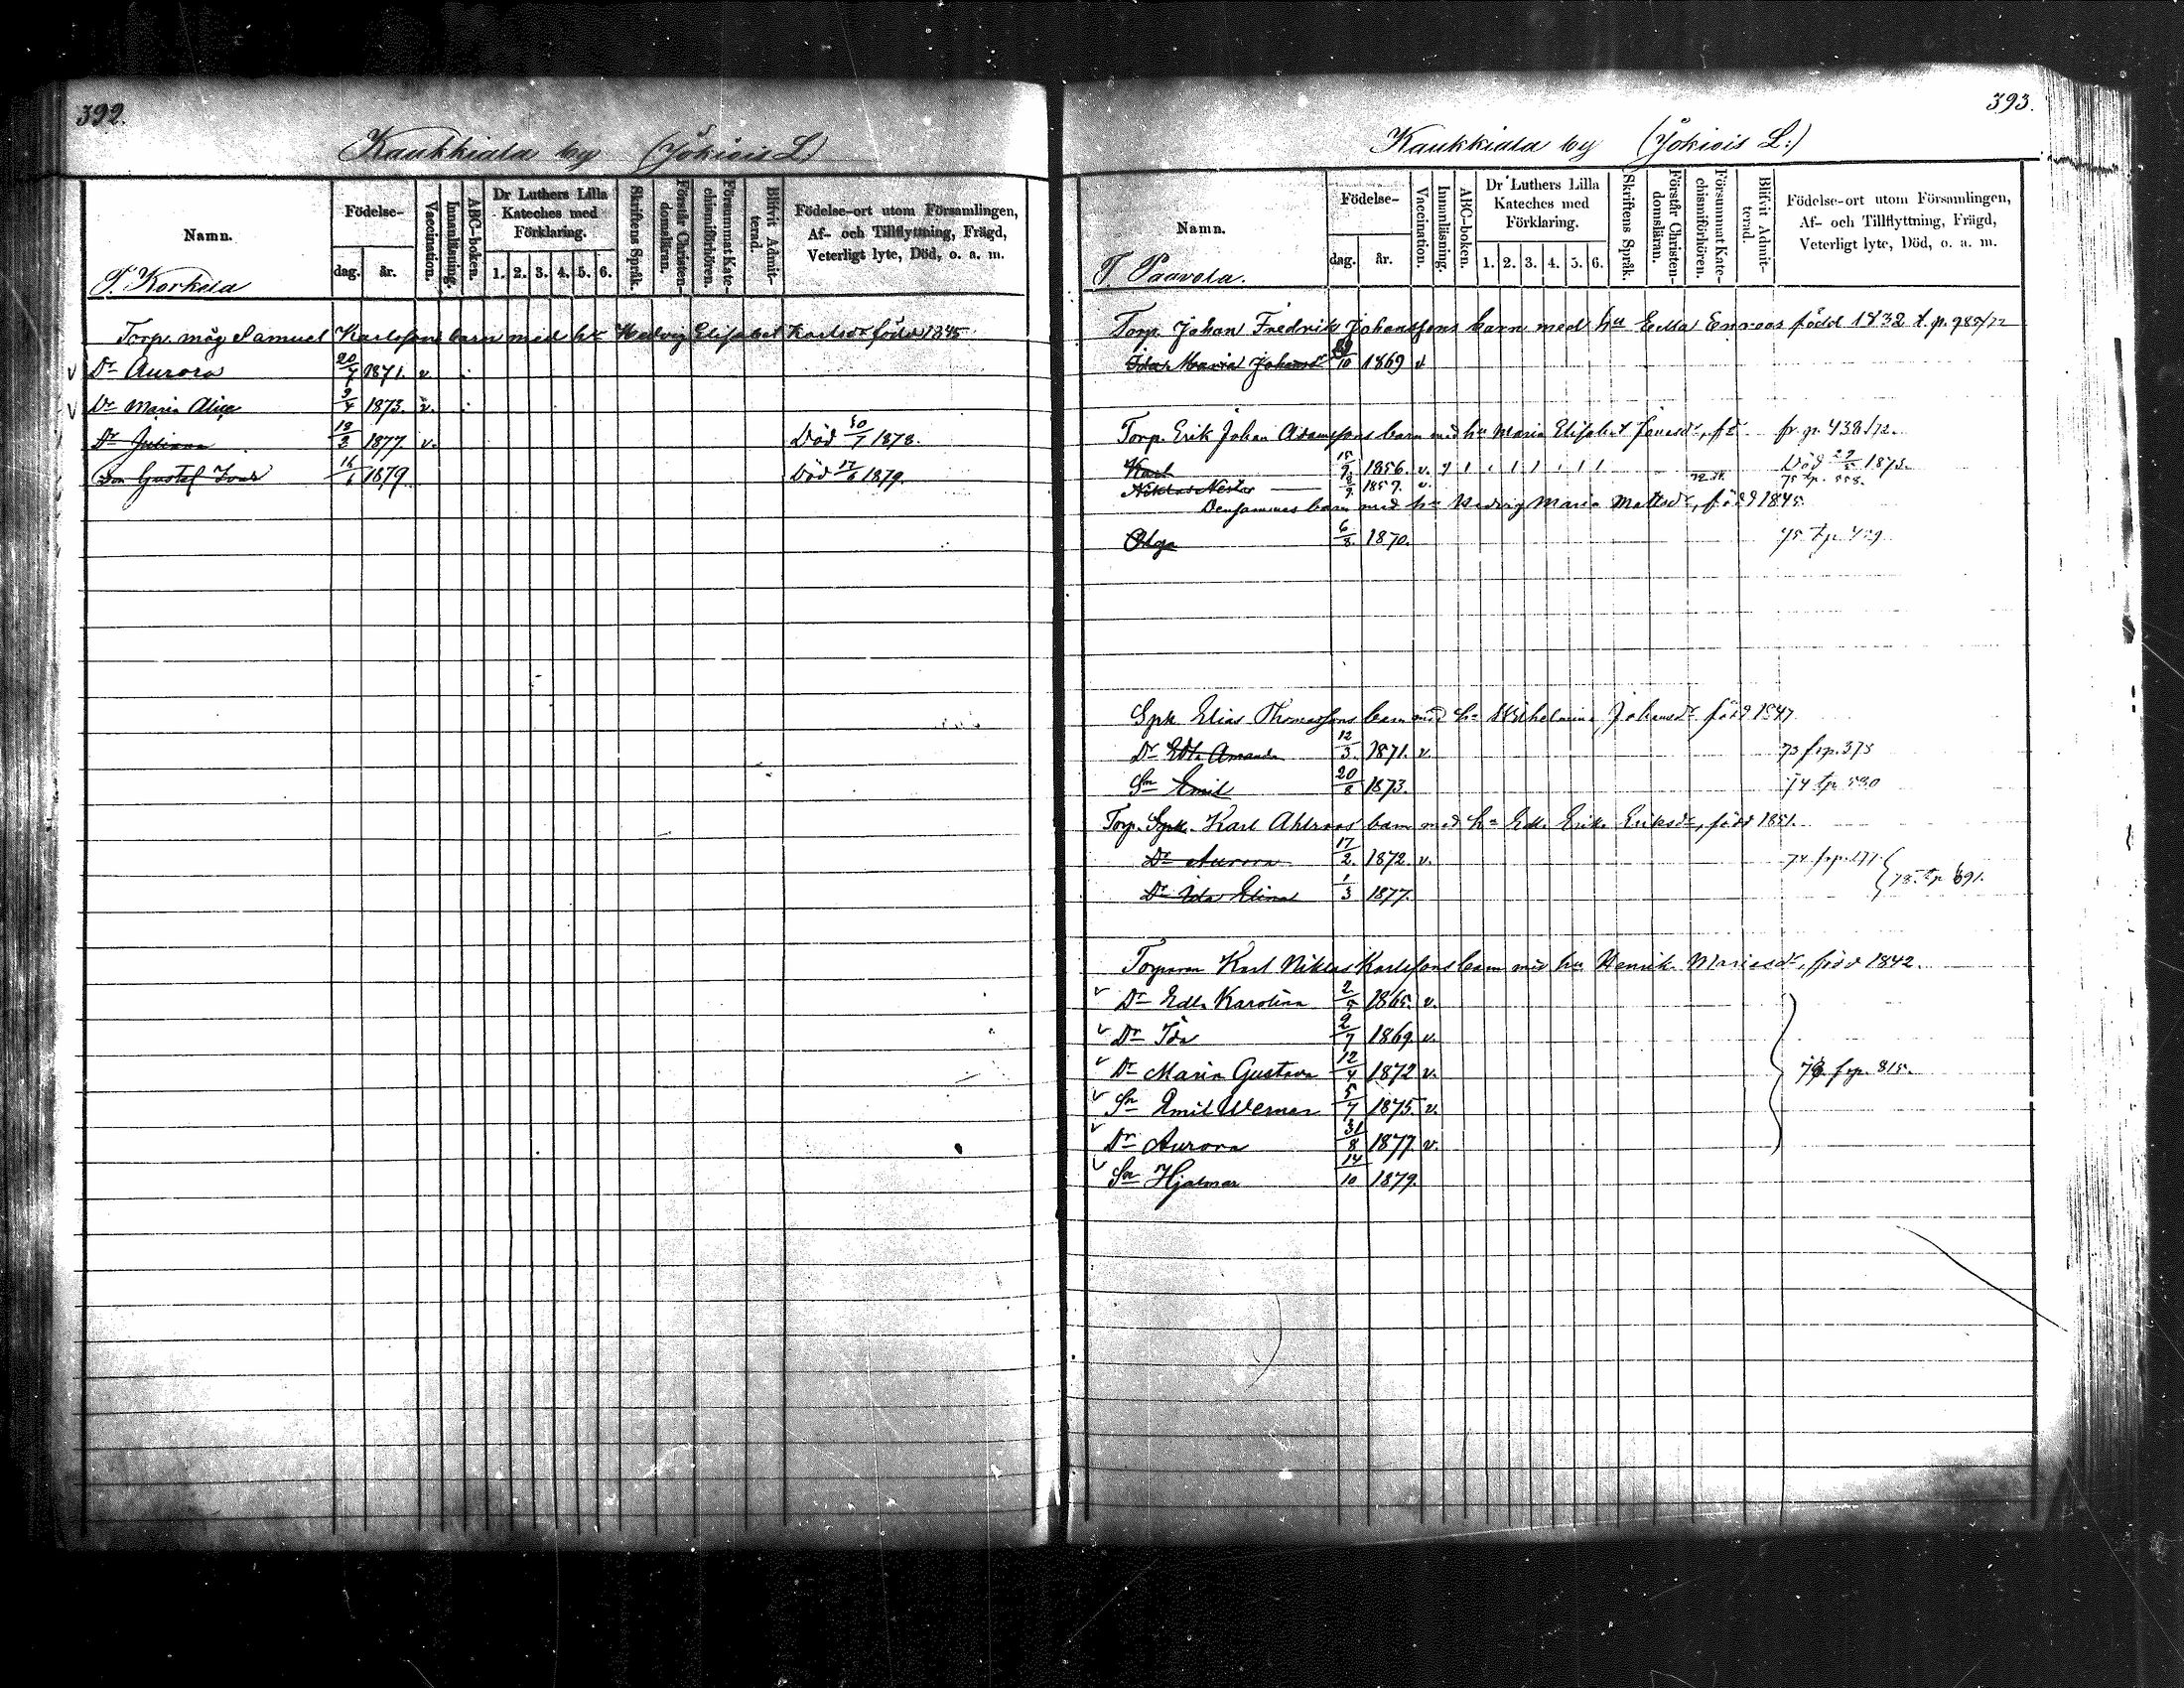 392.
Kaukkiala by (Jokiois L.)
Namn.
Födelse-
dag.
år.
Vaccination.
Innanläsning.
ABC-boken.
Dr Luthers Lilla
Kateches med
Förklaring.
1. 2. 3. 4. 5. 6.
Skriftens Språk.
Förstår Christen-
domsläran.
Försummat Kate-
chismiförhören.
Blifvit Admit-
terad.
Födelse-ort utom Församlingen,
Af- och Tillflyttning, Frägd,
Veterligt lyte, Död, o. a. m.
T. Korkila
Torp. måg Samuel Karlssons barn med hu Hedvig Elisabet Karlsdr född 1845
v Dr Aurora 20/7 1871. v.
v Dr Maria Alice 3/4 1873. v.
Dr Juliana 18/3 1877 v. Död 30/7 1878.
Son Gustaf Ivar 16/1 1879 Död 17/6 1879.
393.
Kaukkiala by (Jokiois L.)
Namn.
Födelse-
dag.
år.
Vaccination.
Innanläsning.
ABC-boken.
Dr Luthers Lilla
Kateches med
Förklaring.
1. 2. 3. 4. 5. 6.
Skriftens Språk.
Förstår Christen-
domsläran.
Försummat Kate-
chismiförhören.
Blifvit Admit-
terad.
Födelse-ort utom Församlingen,
Af- och Tillflyttning, Frägd,
Veterligt lyte, Död, o. a. m.
T. Paavola.
Torp. Johan Fredrik Johanssons barn med hu Eella Enroos född 1832 t. p. 985/72
Ida Maria Johansdr /10 1869 v
Torp. Erik Johan Adamssons barn med hu Maria Elisabet Jonasdr, fd fr. p. 438/72.
Karl 15/9. 1856. v. Död 29/5 1873.
Niklas Nestor 8/9. 1857. v. 75 tp. 558.
Benjamins barn med hu Hedvig Maria Mattsdr, född 1845.
Olga 6/8. 1870. 75 tp. 429
Spk Elias Thomassons barn med hu Wilhelmina Johansdr född 1847
Dr Edla Amanda 12/3. 1871. v 73 frp. 375
Sn Emil 20/8 1873. 74 tp. 530
Torp. Spk. Karl Ahlroos barn med hu Edla Erika Eriksdr, född 1851.
Dr Aurora 17/2. 1872. v. 74 frp. 277.
Dr Ida Elina 1/3 1877. 78. tp 691.
Torparen Karl Niklas Karlssons barn med hu Henrika Mariasdr, född 1842.
v Dr Edla Karolina 2/5 1865. v.
v Dr Ida 2/7 1869. v.
v Dr Maria Gustava 12/4 1872 v. frp. 815.
v Sn Emil Werner 5/7 1875. v.
v Dr Aurora 31/8 1877. v.
v Sn Hjalmar 14/10 1879.